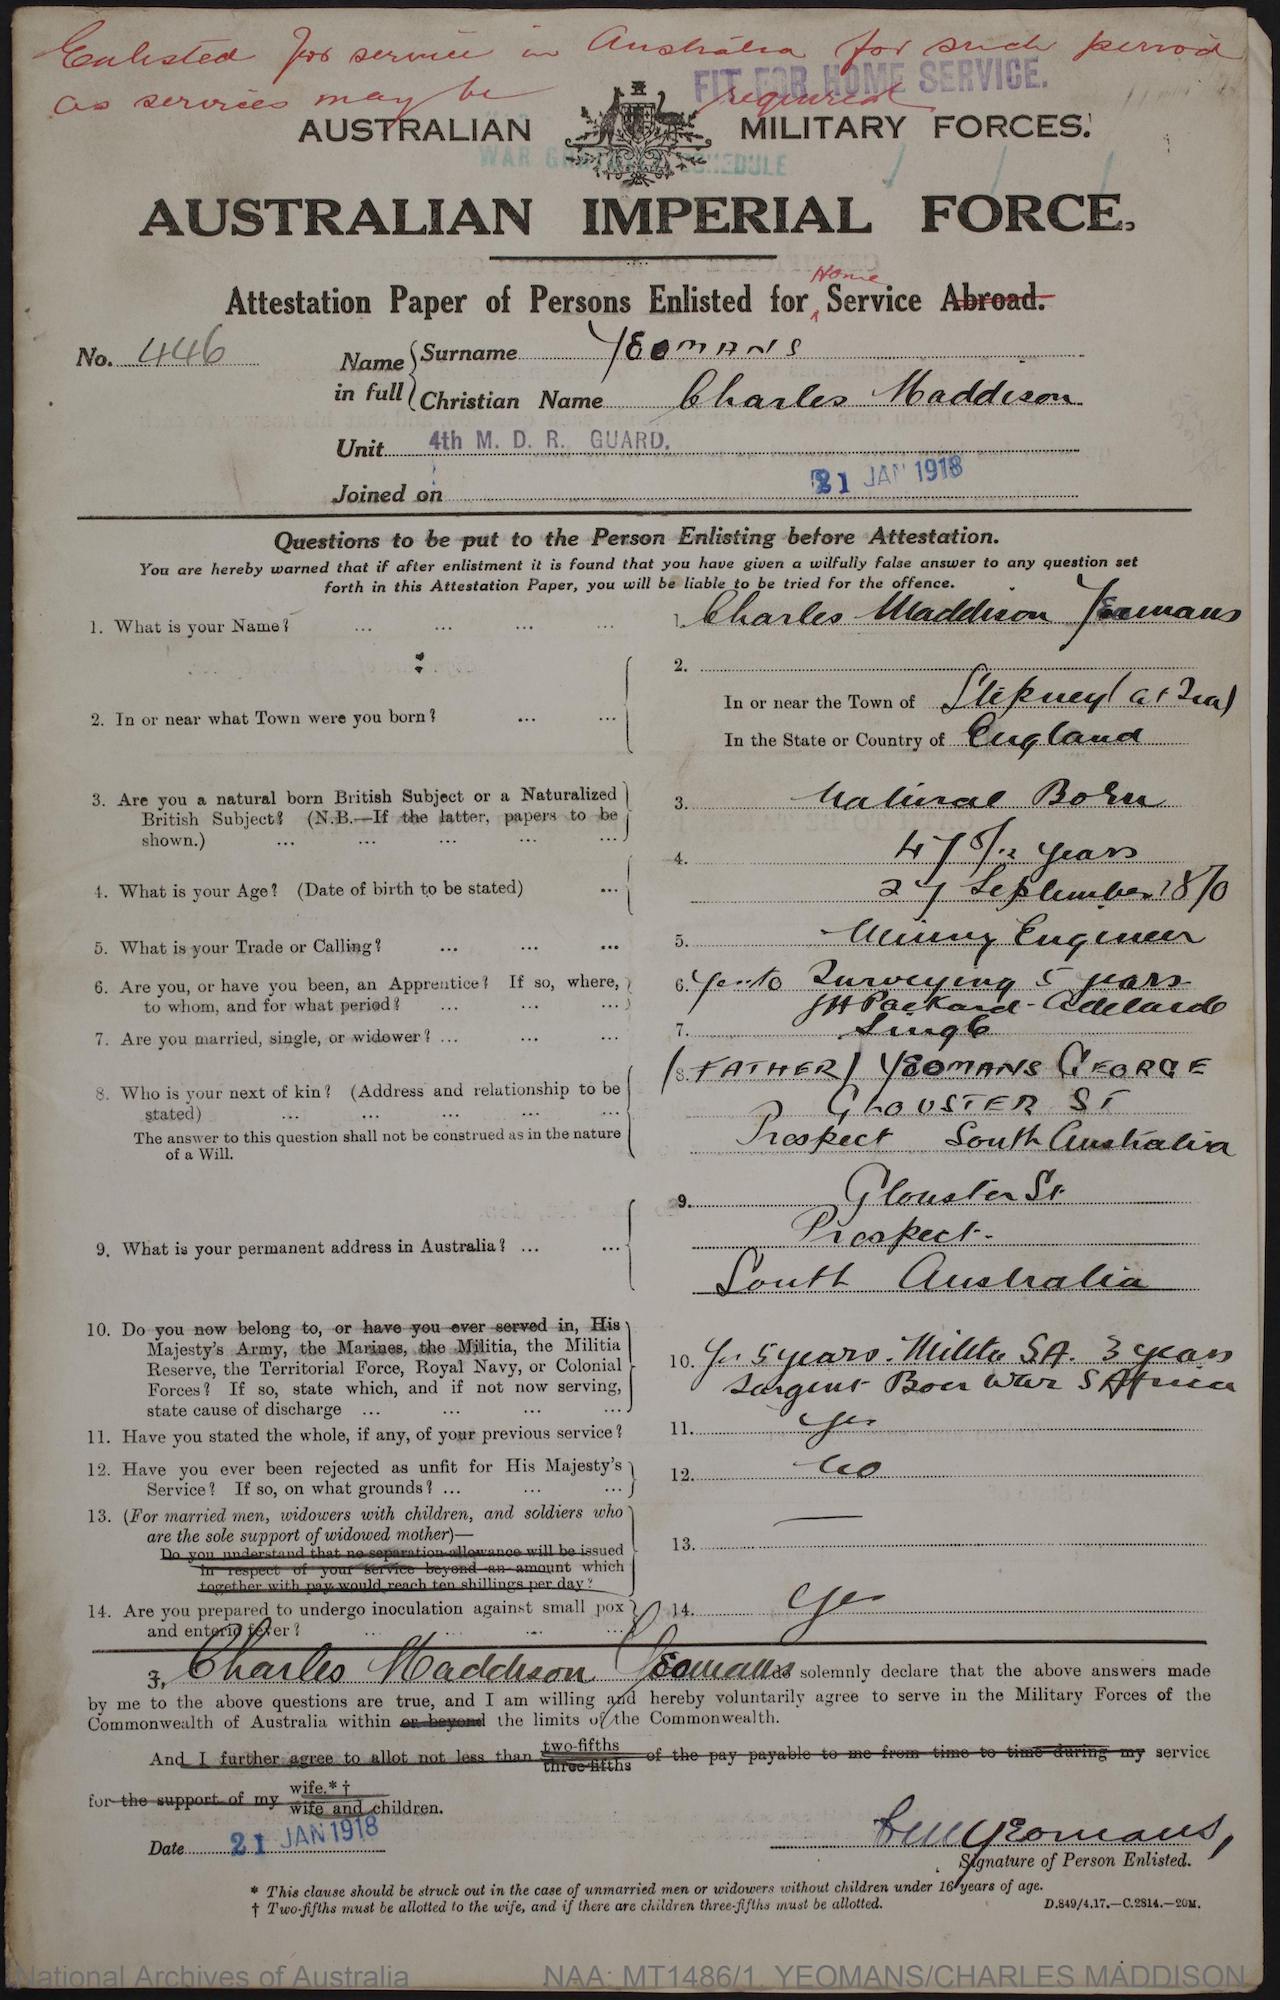 Enlisted for service in Australia for such period
as services may be required
FIT FOR HOME SERVICE.
AUSTRALIAN MILITARY FORCES.
WAR SCHEDULE
AUSTRALIAN IMPERIAL FORCE.
Home
Attestation Paper of Persons Enlisted for Service Abroad.
No. 446
Name in full
Surname YEOMANS
Christian Name Charles Maddison
Unit 4th M. D. R. GUARD.
Joined on 21 JAN 1918
Questions to be put to the Person Enlisting before Attestation.
You are hereby warned that if after enlistment it is found that you have given a wilfully false answer to any question set
forth in this Attestation Paper, you will be liable to be tried for the offence.
1. What is your Name? ... ... ... ... 1. Charles Maddison Yeomans
2. In or near what Town were you born? ... ... 2.
In or near the Town of Stepney
In the State or Country of England
3. Are you a natural born British Subject or a Naturalized
British Subject? (N.B.—If the latter, papers to be
shown.) ... ... ... ... ...
3. Natural Born
4. What is your Age? (Date of birth to be stated) ...
4. 47 5/12 years
27 September 1870
5. What is your Trade or Calling? ... ... ... 5. Mining Engineer
6. Are you, or have you been, an Apprentice? If so, where,
to whom, and for what period? ... ... ...
6. Yes to Surveying 5 years
JH Packard - Adelaide
7. Are you married, single, or widower? ... ... ... 7. Single
8. Who is your next of kin? (Address and relationship to be
stated) ... ... ... ... ...
The answer to this question shall not be construed as in the nature
of a Will.
8. (FATHER) YEOMANS GEORGE
GLOUSTER ST
Prospect South Australia
9. What is your permanent address in Australia? ... ...
9. Glouster St
Prospect.
South Australia
10. Do you now belong to, or have you ever served in, His
Majesty's Army, the Marines, the Militia, the Militia
Reserve, the Territorial Force, Royal Navy, or Colonial
Forces? If so, state which, and if not now serving,
state cause of discharge ... ... ... ...
10. Yes 5 years. Milita S.A. 3 years
Sargent Boer War S Africa
11. Have you stated the whole, if any, of your previous service? 11. Yes
12. Have you ever been rejected as unfit for His Majesty's
Service? If so, on what grounds? ... ...
12. No
13. (For married men, widowers with children, and soldiers who
are the sole support of widowed mother)—
Do you understand that no separation allowance will be issued
in respect of your service beyond an amount which
together with pay would reach ten shillings per day?
13. —
14. Are you prepared to undergo inoculation against small pox
and enteric fever? ... ... ... ...
14. Yes
I, Charles Maddison Yeomans do solemnly declare that the above answers made
by me to the above questions are true, and I am willing and hereby voluntarily agree to serve in the Military Forces of the
Commonwealth of Australia within or beyond the limits of the Commonwealth.
And I further agree to allot not less than two-fifths three-fifths of the pay payable to me from time to time during my service
for the support of my wife.* † wife and children.
Date 21 JAN 1918
CM Yeomans,
Signature of Person Enlisted.
* This clause should be struck out in the case of unmarried men or widowers without children under 16 years of age.
† Two-fifths must be allotted to the wife, and if there are children three-fifths must be allotted.
D.849/4.17.—C.2814.—20M.
National Archives of Australia
NAA: MT1486/1, YEOMANS/CHARLES MADDISON